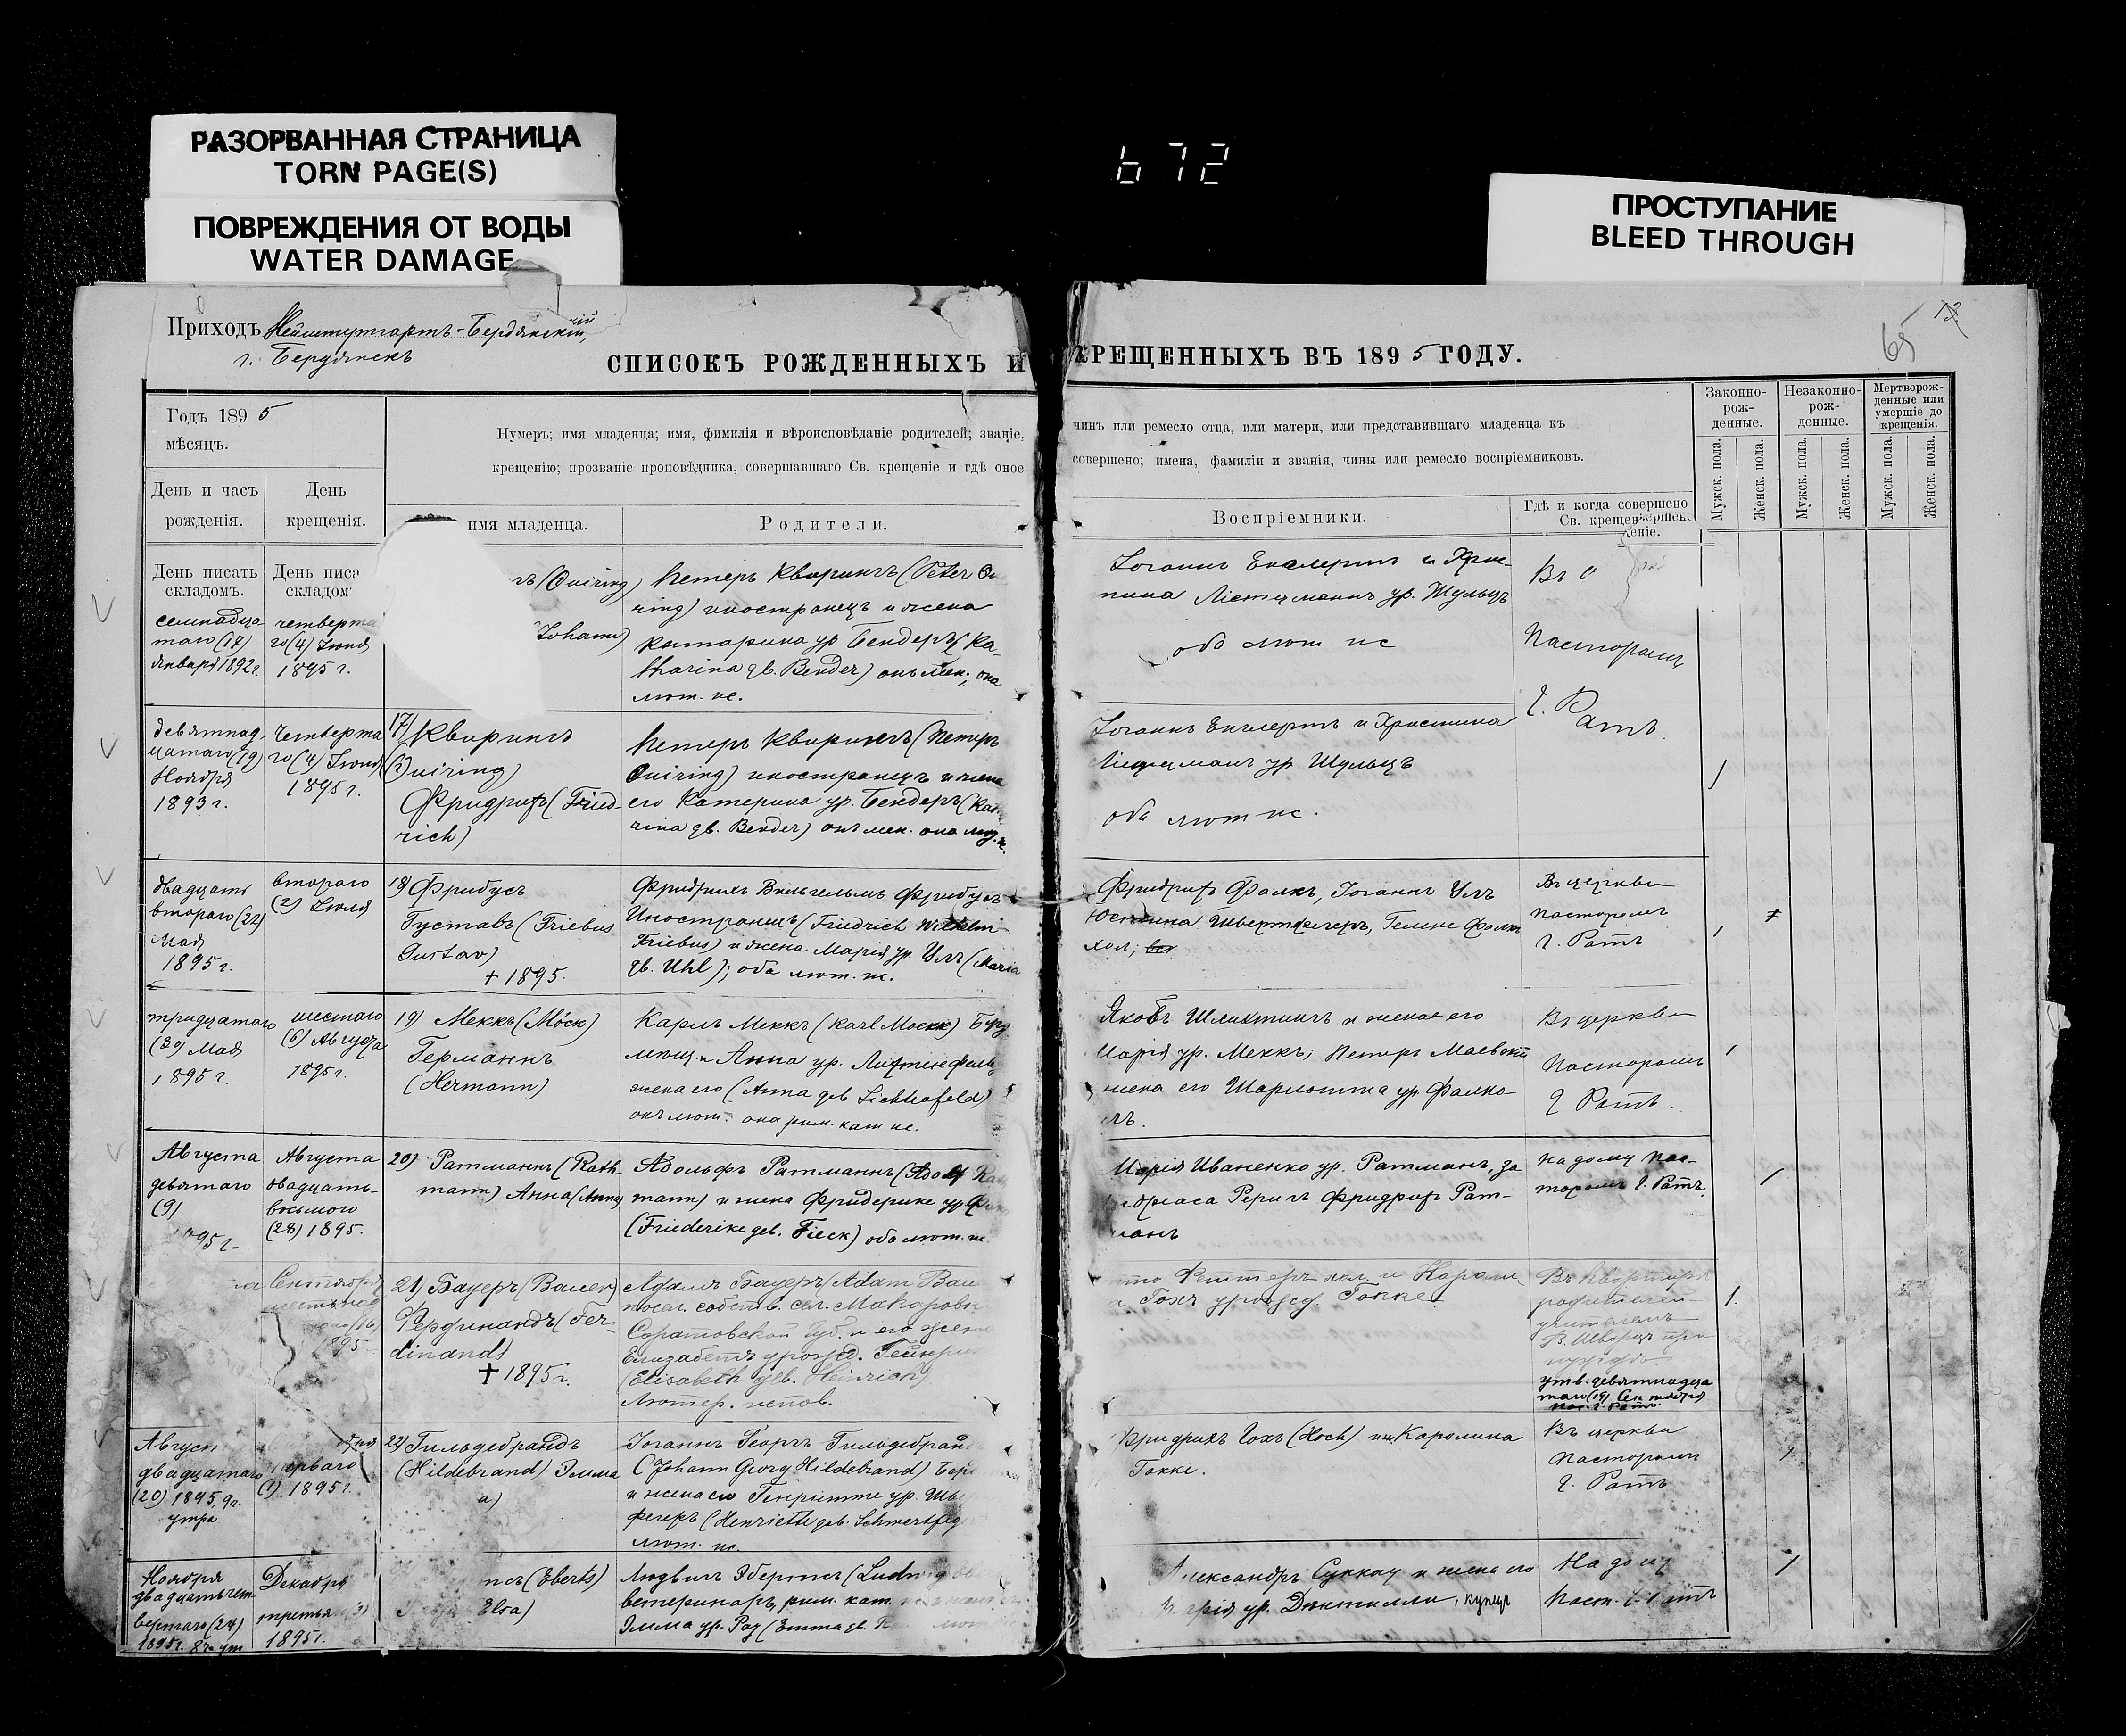 РАЗОРВАННАЯ СТРАНИЦА
TORN PAGE(S)
ПОВРЕЖДЕНИЯ ОТ ВОДЫ
WATER DAMAGE
672
ПРОСТУПАНИЕ
BLEED THROUGH
65
Приходъ Нейштутгартъ-Бердянскій,
г. Бердянскъ
СПИСОКЪ РОЖДЕННЫХЪ И КРЕЩЕННЫХЪ ВЪ 1895 ГОДУ.
Годъ 1895
мѣсяцъ.
День и часъ
рожденія.
День
крещенія.
Нумеръ; имя младенца; имя, фимилія и вѣроисповѣданіе родителей; званіе, чинъ или ремесло отца, или матери, или представившаго младенца къ
крещенію; прозваніе проповѣдника, совершавшаго Св. крещеніе и гдѣ оное совершено; имена, фамиліи и званія, чины или ремесло воспріемниковъ.
имя младенца.
Родители.
Воспріемники.
Гдѣ и когда совершено
Св. крещеніе.
Законно-
рож-
денные.
Незаконно-
рож-
денные.
Мертворож-
денные или
умершіе до
крещенія.
Мужск. пола.
Женск. пола.
Мужск. пола.
Женск. пола.
Мужск. пола.
Женск. пола.
День писать
складомъ.
День писа
складом
семнадца
таго (17)
января 1892 г.
четверта
го (4) Іюня
1895 г.
(Quiring)
Johann)
Петеръ Квирингъ (Peter Qu
ring) иностранецъ и жена
Катарина ур Бендеръ (Ka-
tharina geb. Bender) онъ мен.; она
лют. ис.
Іоганнъ Енглертъ и Хрис-
тина ур. Шульцъ
оба лют ис
Въ
Пасторомъ
Г. Ратъ.
девятнад
цатаго (19)
Ноября
1893 г.
Четверта
го (4) Іюня
1895 г.
17) Квирингъ
(Quiring)
Фридрихъ (Fried-
rich)
Петеръ Квирингъ (Петеръ
Quiring) иностранецъ и жена
его Катерина ур. Бендеръ (Kat
rina geb. Bender) онъ мен. она лют. и.
Іоганнъ Енглертъ и Христина
ур Шульцъ
оба лют ис.
двадцать
втораго (22)
Мая
1895 г.
втораго
(2) Іюля
18) Фрибусъ
Густавъ (Friebus
Gustav)
+ 1895.
Фридрихъ Вильгельмъ Фрибусъ
Иностранецъ (Friedrich Wilhelm
Friebus) и жена Марія ур. Улъ (Maria
geb. Uhl); оба лют. ис.
Фридрихъ Фалкъ, Іоганнъ Улъ
Юстина Швертфегеръ, Гелене Фалкъ
хол;
Въ церкви
пасторомъ
Г. Ратъ
тридцатаго
(30) Мая
1895 г.
шестаго
(6) Августа
1895 г.
19) Меккъ (Möck)
Германнъ
(Hermann)
Карлъ Меккъ (Karl Moekk) Берд
мѣщ. и Анна ур. Лихтенфельд
жена его (Anna geb Lichtefeld)
онъ лют. она рим. кат ис.
Якобъ Шлихтингъ и жена его
Марія ур. Меккъ; Петеръ Маевскі
жена его Шарлотта ур. Фалко-
въ.
Въ церкви
Пасторомъ
Г Ратъ.
Августа
девятаго
(9)
1895 г.
Августа
двадцать-
восьмого
(28) 1895.
20) Ратманнъ (Rath
mann) Анна (Anna)
Адольфъ Ратманнъ (Adolf Rath
mann) и жена Фридерике ур Ф
(Friederike geb. Fieck) оба лют. ис.
Марія Иваненко ур. Ратманъ, за
Фридрихъ Рат-
манъ
На дому пас-
торомъ Г. Ратъ.
Сентября
шестнад
1895
21) Бауеръ (Bauer)
Фердинандъ (Fer-
dinand)
+ 1895 г.
Адамъ Бауеръ (Adam Bau
посел. собств. сел. Макаровк
Саратовской губ. и его жена
Елизабетъ урожд. Гейнрих
(Elisabeth geb. Heinrich)
Лютер. испов.
хол. и Кароли
Гохъ урожд. Гокке.
Въ квартирѣ
родителей
учителемъ
В. Шварцъ при
нуждѣ
утв. девятнадца
таго (19) Сентября
пас. Г. Ратъ.
Август
двадцатаго
(20) 1895, 9 г.
утра
перваго
(1). 1895 г.
22) Гильдебрандъ
(Hildebrand) Эмма
а)
Іоганнъ Георгъ Гильдебранд
(Johann Georg Hildebrand) Берд
и жена его Генриетте ур. Шв
фегеръ (Henriette geb. Schwertfeg
лют. ис.
Фридрихъ Гохъ (Hoch) и Каролина
Гокке.
Въ церкви
пасторомъ
Г. Ратъ
Ноября
двадцать чет-
вертаго (24)
1895 г. 8 ч ут
Декабря
третьяго (3)
1895 г.
(Eberts)
Elsa)
Людвигъ Эбертсъ (Ludwig
ветеринаръ, рим. кат.
Эмма ур. Рау (Emma geb.
Александръ Суккау и жена его
Марія ур. купецъ
На дому
Паст.